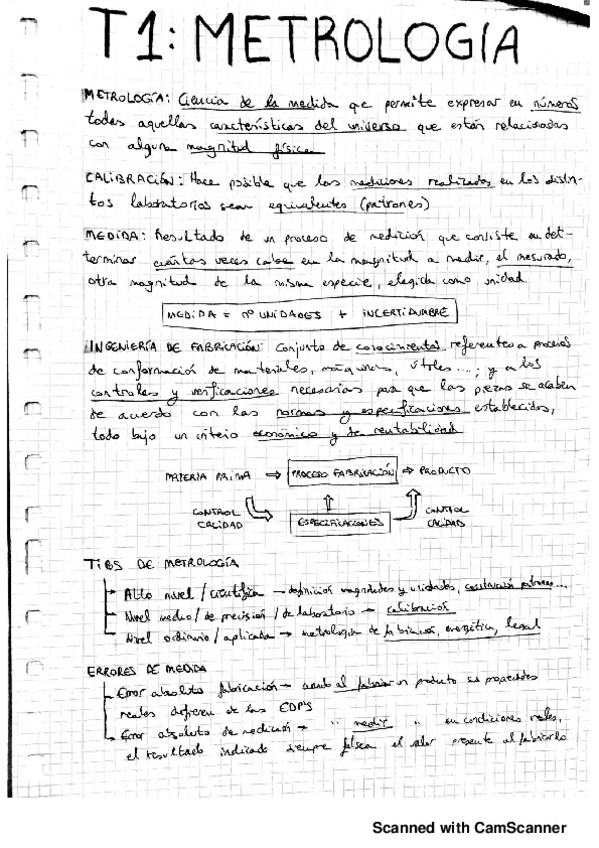 T1: METROLOGÍA
METROLOGÍA: Ciencia de la medida que permite expresar en números
todas aquellas características del universo que están relacionadas
con alguna magnitud física
CALIBRACIÓN: Hace posible que las mediciones realizadas en los distin-
tos laboratorios sean equivalentes (patrones)
MEDIDA: Resultado de un proceso de medición que consiste en det-
terminar cuántas veces cabe en la magnitud a medir, el mesurado,
otra magnitud de la misma especie, elegida como unidad
MEDIDA = nº UNIDADES + INCERTIDUMBRE
INGENIERÍA DE FABRICACIÓN: Conjunto de conocimientos referentes a procesos
de conformación de materiales, máquinas, útiles...; y a los
controles y verificaciones necesarias para que las piezas se acaben
de acuerdo con las normas y especificaciones establecidas,
todo bajo un criterio económico y de rentabilidad
MATERIA PRIMA ⇒ PROCESO FABRICACIÓN ⇒ PRODUCTO
CONTROL CALIDAD ESPECIFICACIONES CONTROL CALIDAD
TIPOS DE METROLOGÍA
Alto nivel / científica → definición magnitudes y unidades, construcción patrones...
Nivel medio / de precisión / de laboratorio → calibración
Nivel ordinario / aplicada → metrología de fabricación, energética, legal
ERRORES DE MEDIDA
Error absoluto fabricación → cuando al fabricar un producto sus propiedades
reales difieren de las EDP'S
Error absoluto de medición → " medir " en condiciones reales,
el resultado indicado siempre falsea el valor presente al fabricarlo
Scanned with CamScanner